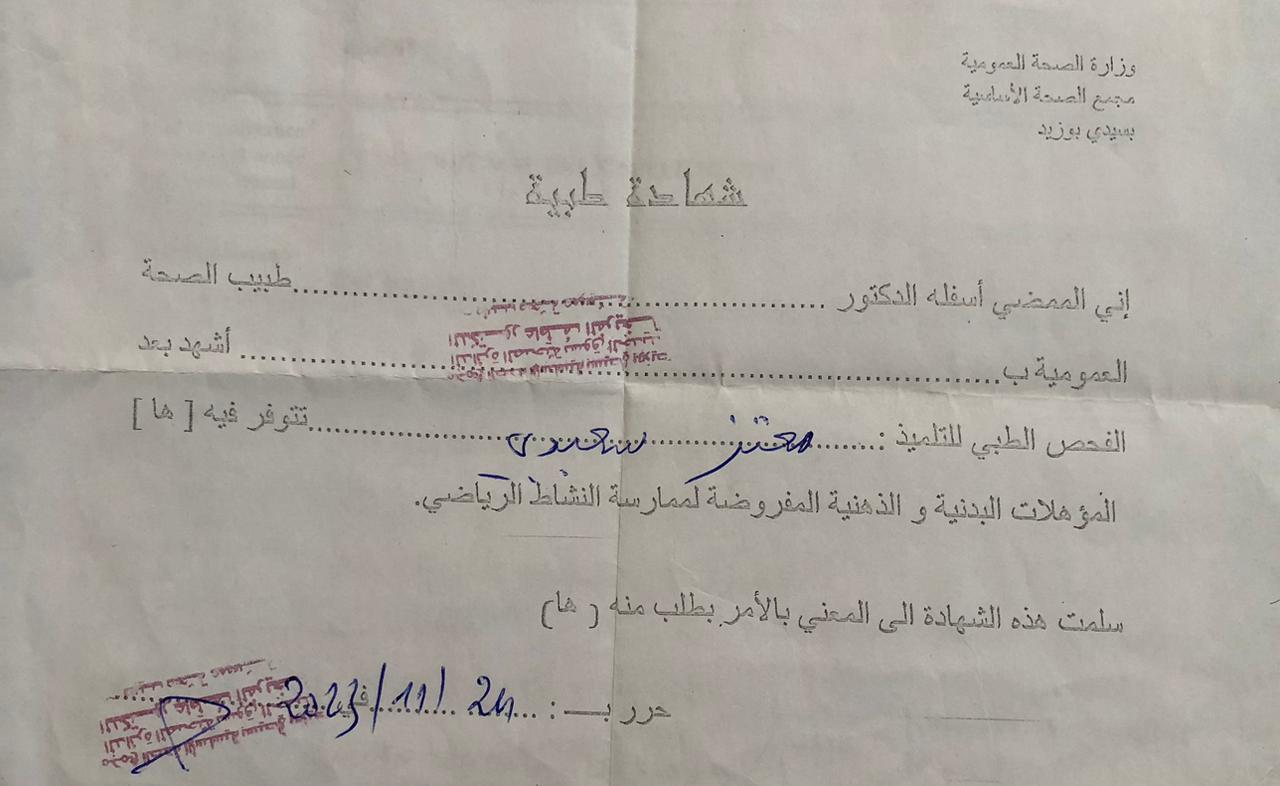 وزارة الصحة العمومية
مجمع الصحة الأساسية
بسيدي بوزيد
شهادة طبية
إني الممضي أسفله الدكتور ........................ طبيب الصحة
العمومية ب ........................ أشهد بعد
الفحص الطبي للتلميذ : معتز سعيدي ........................ تتوفر فيه [ ها ]
المؤهلات البدنية و الذهنية المفروضة لممارسة النشاط الرياضي.
سلمت هذه الشهادة الى المعني بالأمر بطلب منه ( ها )
حرر بـ : ........ في ........ 24 / 11 / 2023